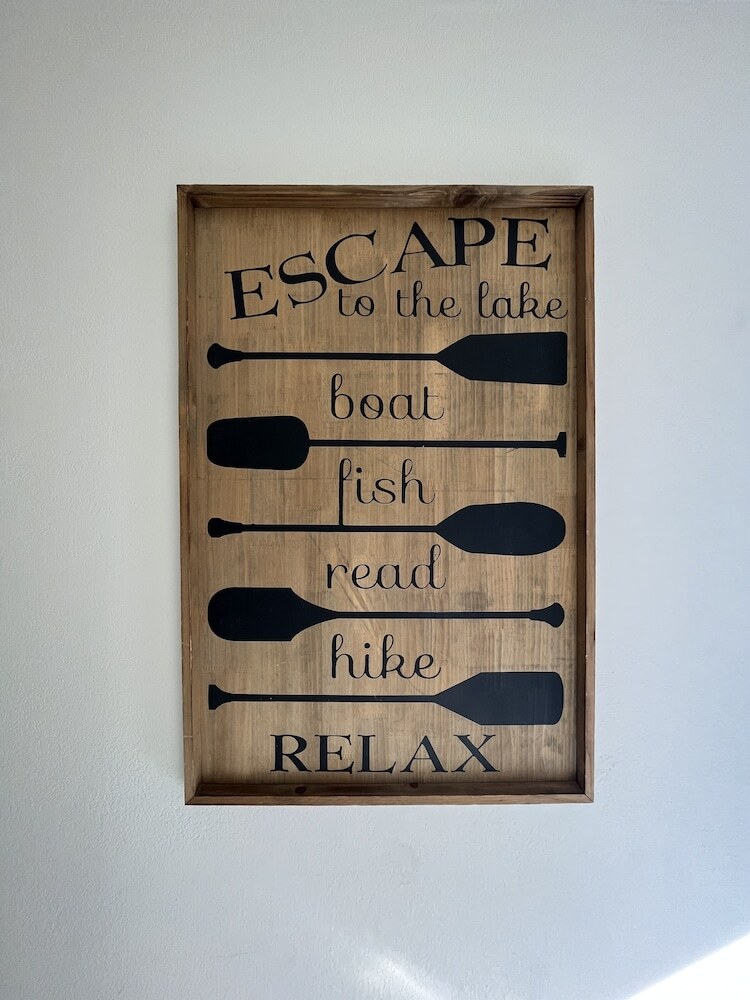 ESCAPE
to the lake
boat
fish
read
hike
RELAX